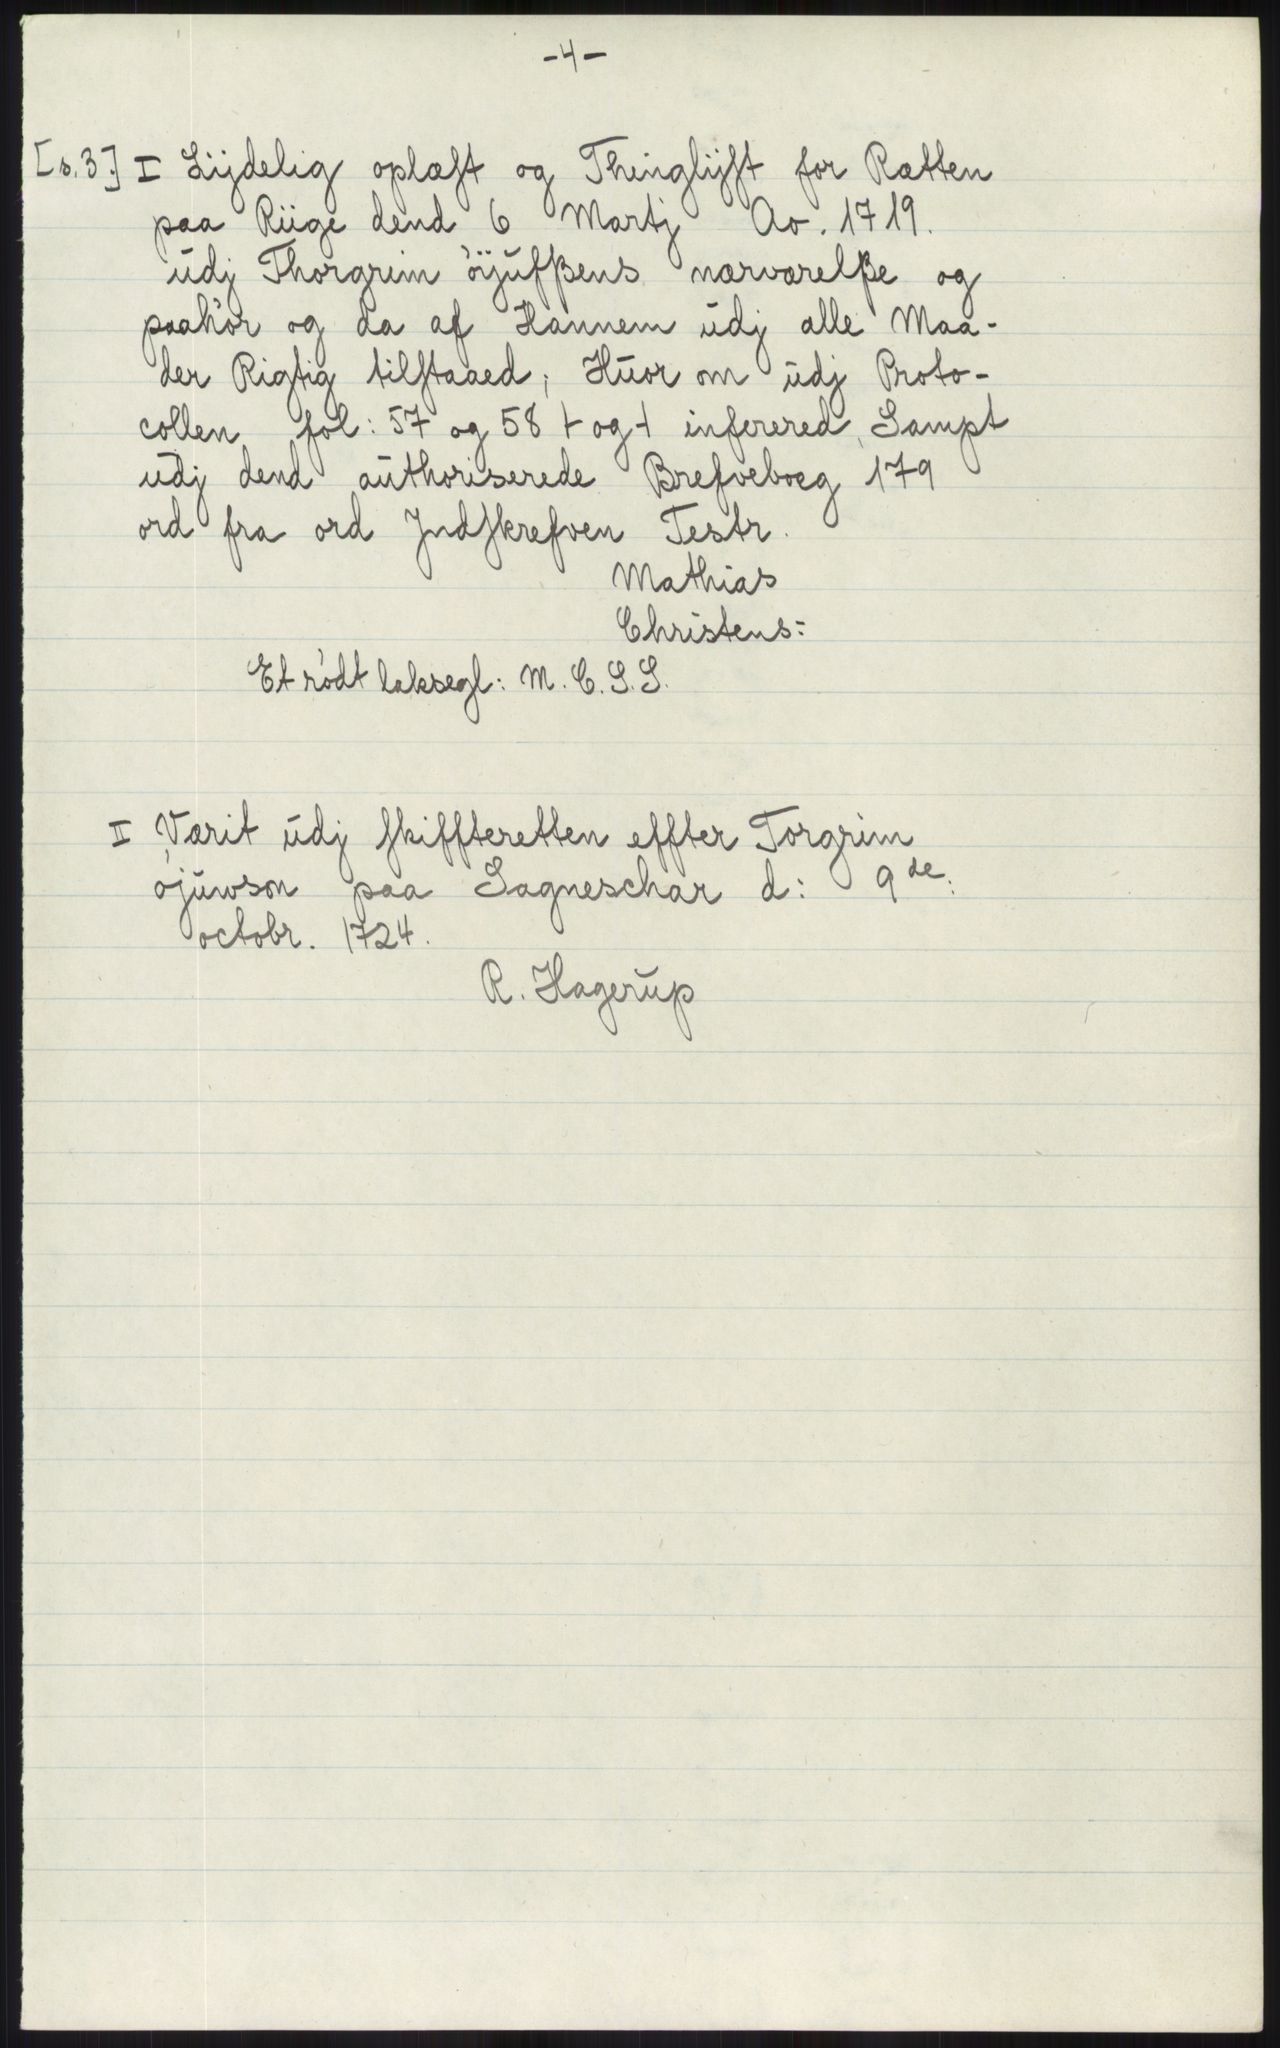 -4-
[s.3.] I Lijdelig oplæst og Thinglijst for Rætten
paa Riige dend 6 Martj Ao. 1719.
udj Thorgrim öÿufßens nærværelße og
paahör og da af Hannem udj alle Maa-
der Rigtig tilstaaed; Huor om udj Proto-
collen fol: 57 og 58 + og + inserered, Sampt
udj dend authoriserede Brefveboeg 179
ord fra ord Jndskrefven Testr.
Mathias
Christens:
Et rødt laksegl: M. C. S. S.
I Værit udj skiffteretten effter Torgrim
öjuwson paa Lagneschar d: 9de:
octobr. 1724.
R. Hagerup